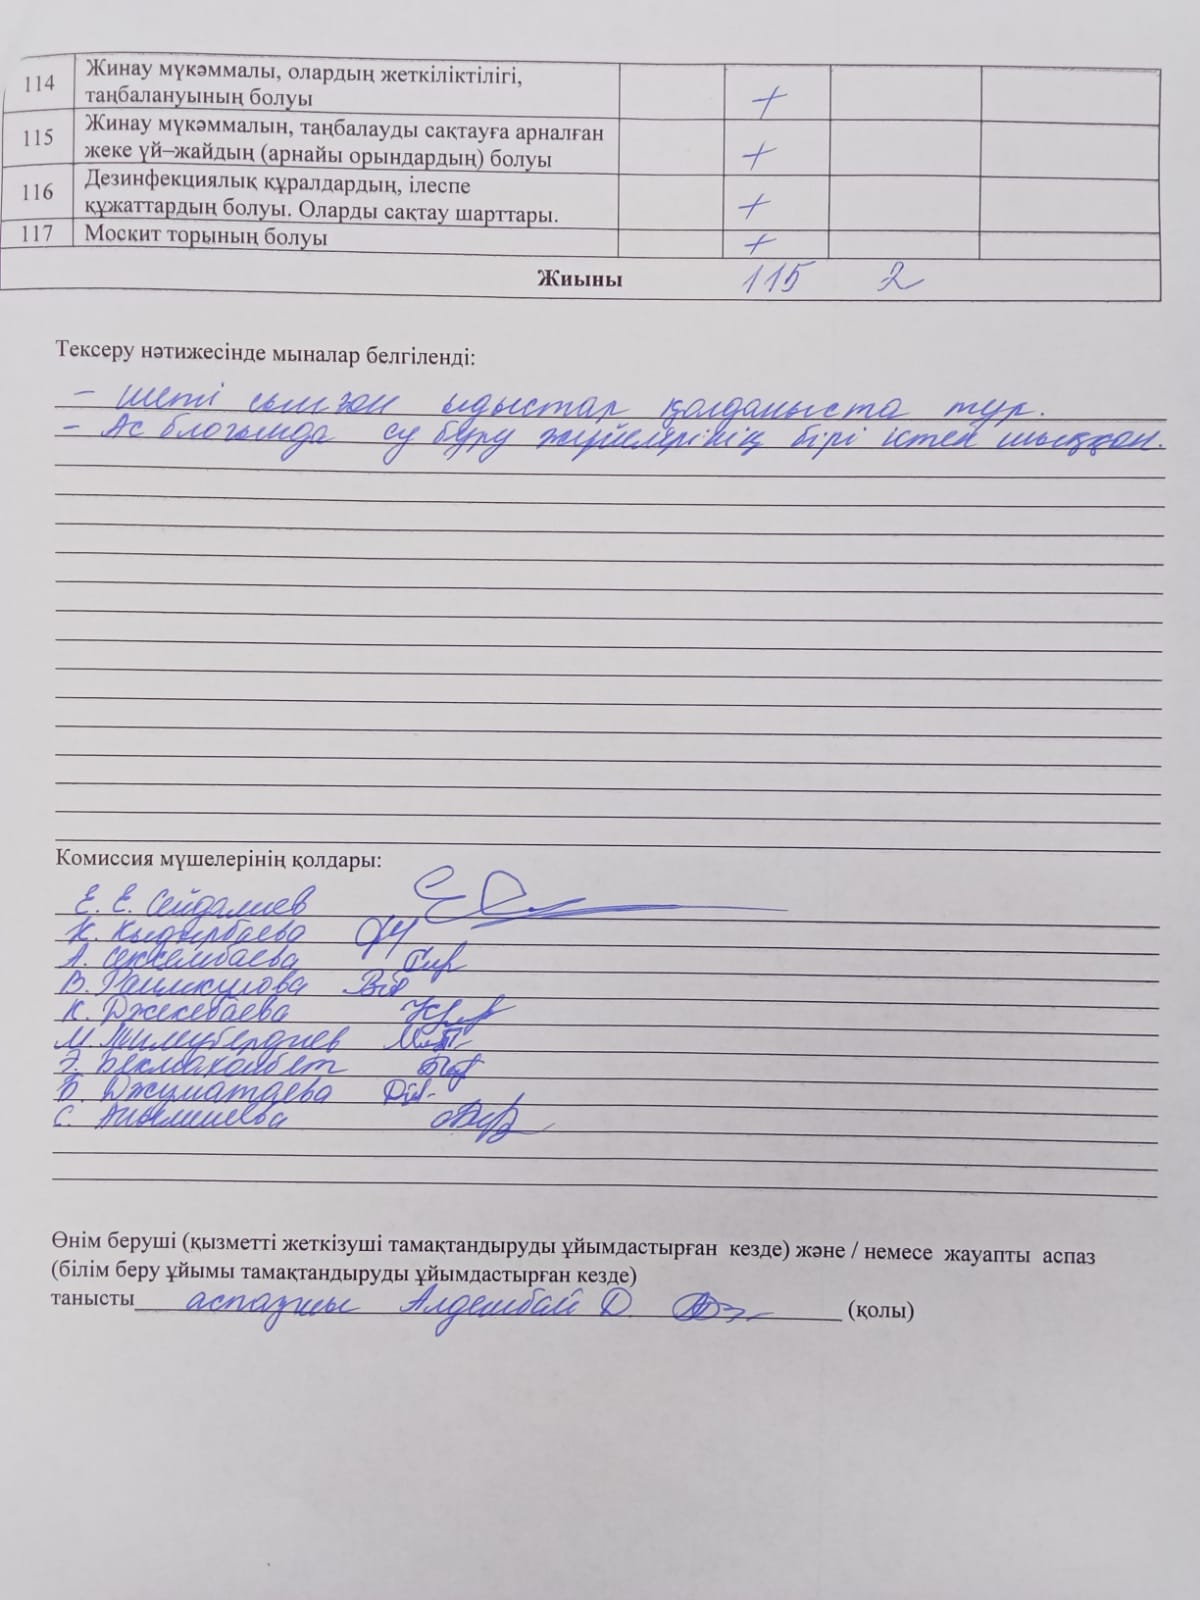 114 Жинау мүкәммалы, олардың жеткіліктілігі,
таңбалануының болуы +
115 Жинау мүкәммалын, таңбалауды сақтауға арналған
жеке үй–жайдың (арнайы орындардың) болуы +
116 Дезинфекциялық құралдардың, ілеспе
құжаттардың болуы. Оларды сақтау шарттары. +
117 Москит торының болуы +
Жиыны 115 2
Тексеру нәтижесінде мыналар белгіленді:
- шеті сынған ыдыстар қолданыста тұр.
- Ас блогында су бұру жүйелерінің бірі істен шыққан.
Комиссия мүшелерінің қолдары:
Е. Е. Сейдалиев
К. Кыдырбаева
А.
В.
К. Джекебаева
М.
Э.
Б. Джуматаева
С.
Өнім беруші (қызметті жеткізуші тамақтандыруды ұйымдастырған кезде) және / немесе жауапты аспаз
(білім беру ұйымы тамақтандыруды ұйымдастырған кезде)
танысты аспазшы Алдешбай Д. (қолы)